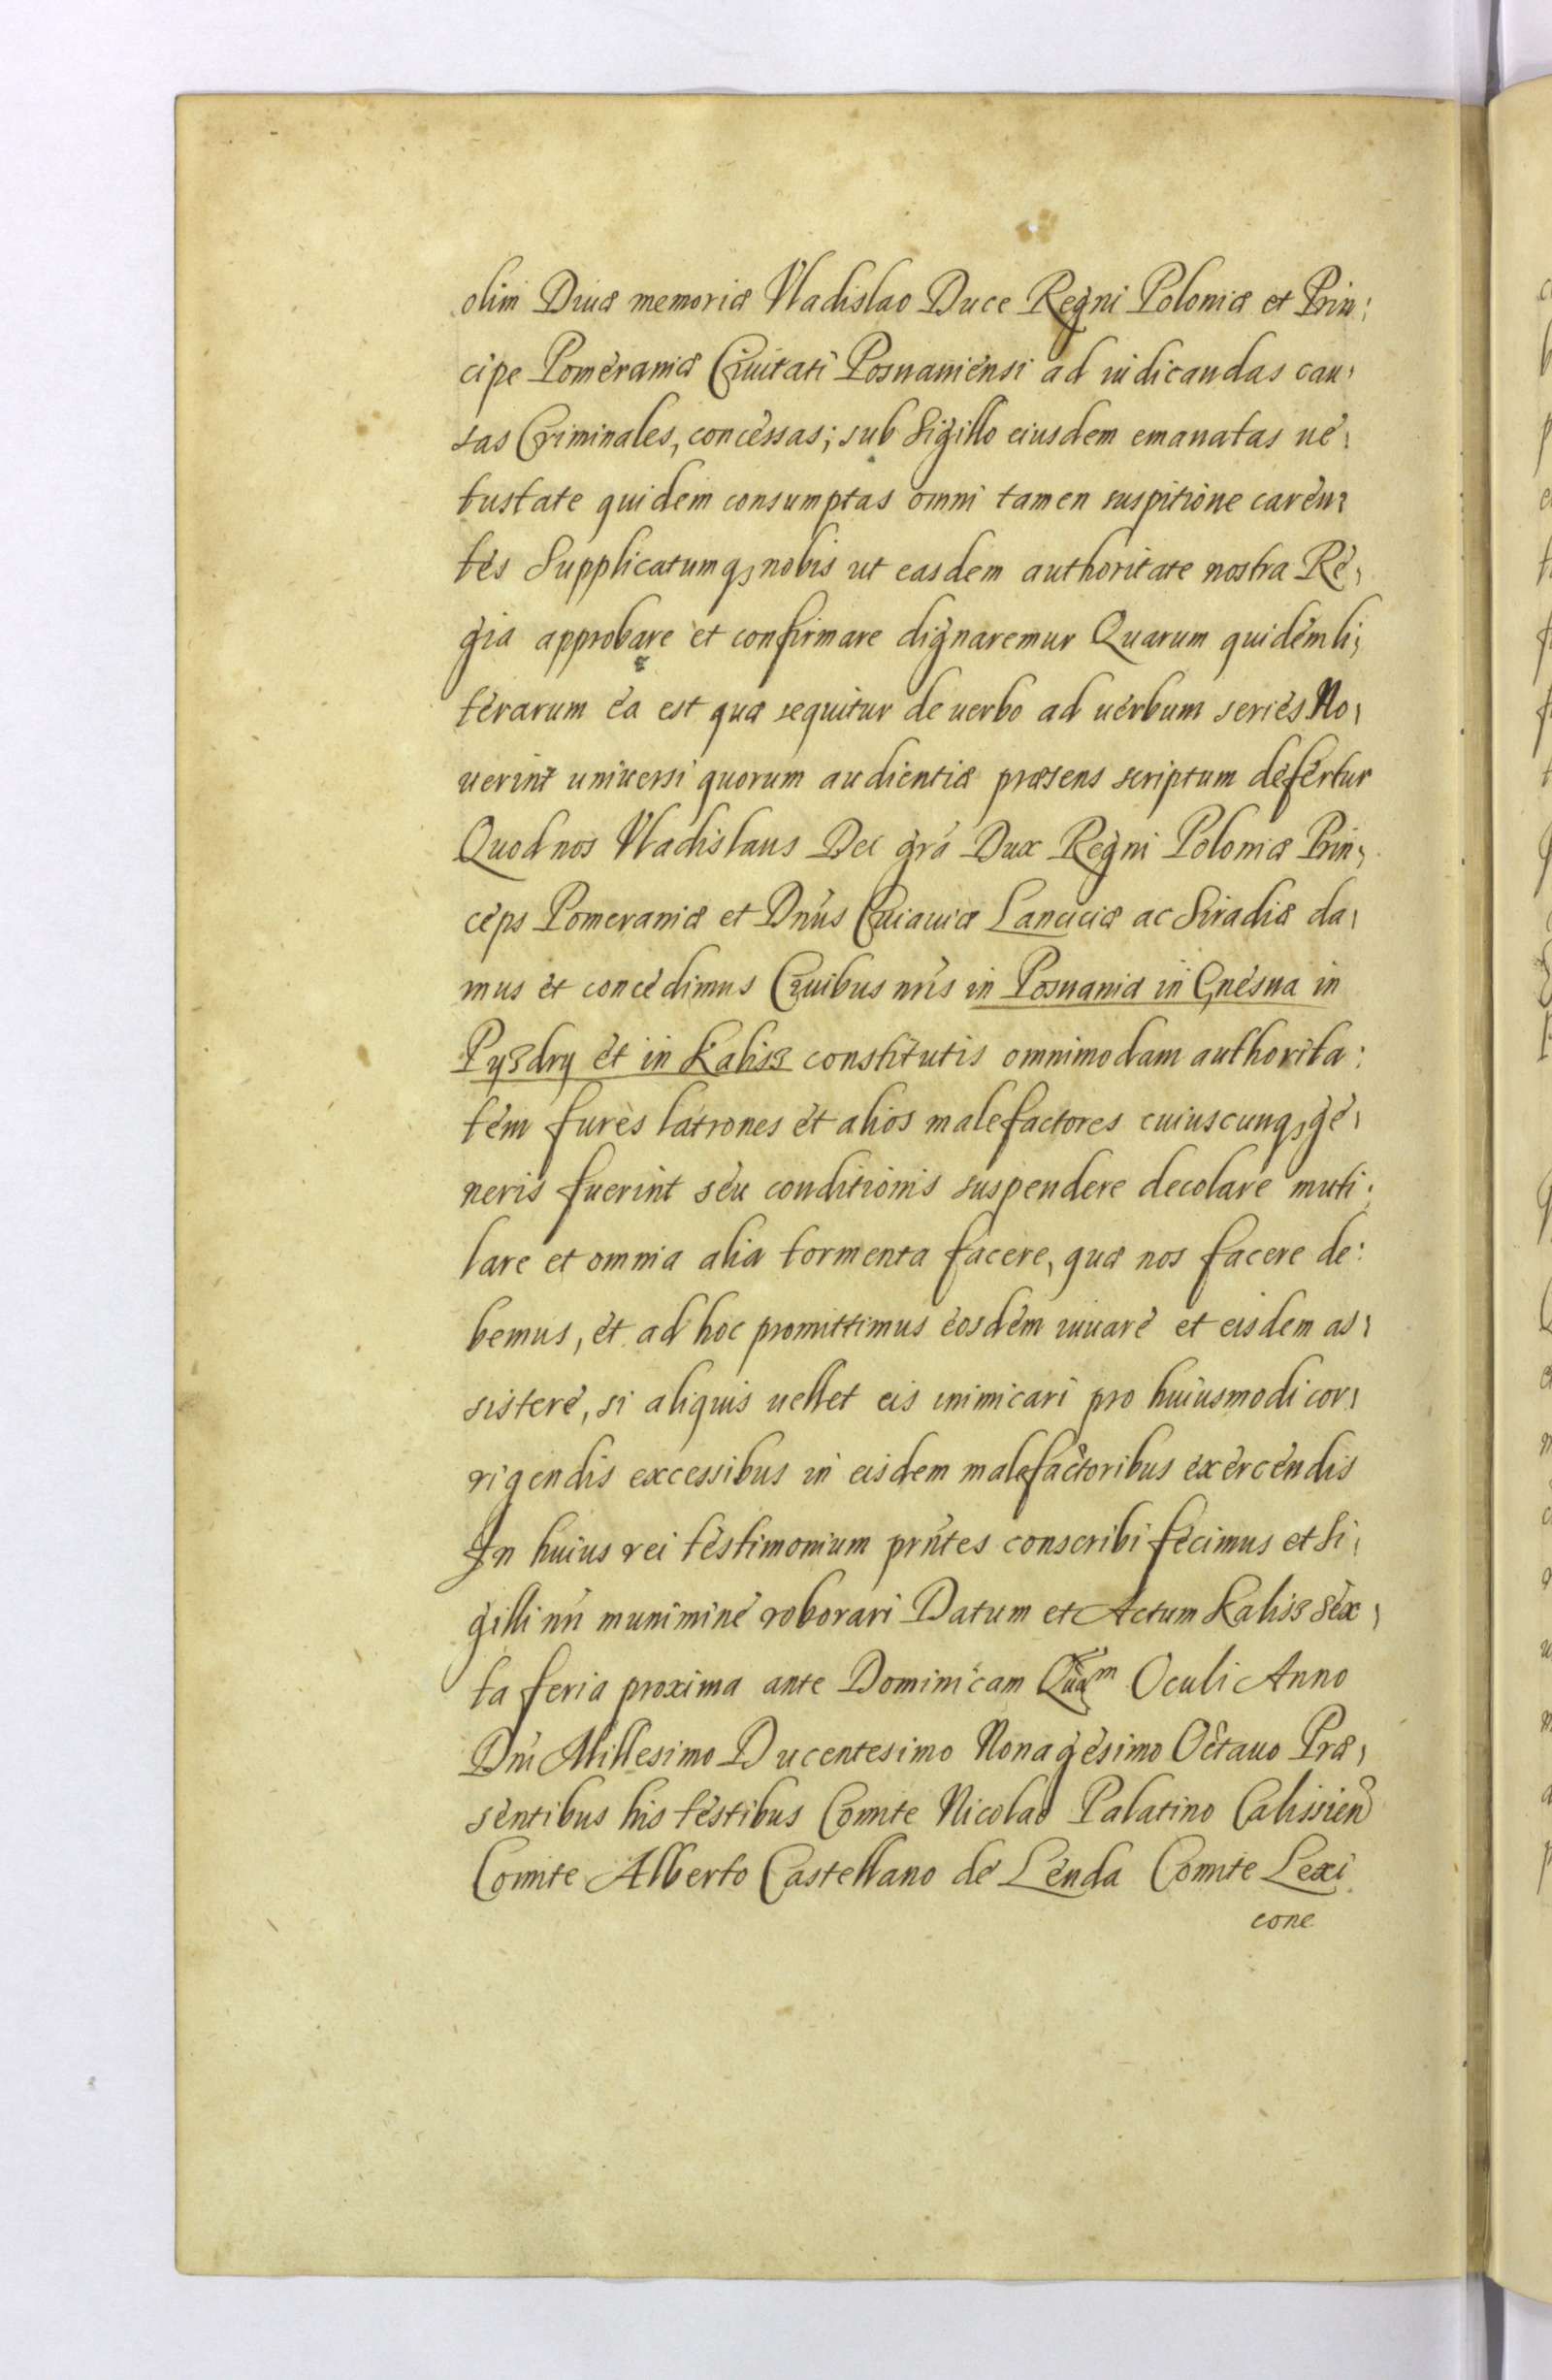 olim Diuæ memoriæ Vladislao Duce Regni Poloniæ et Prin:
cipe Pomeraniæ Ciuitati Posnaniensi ad iudicandas cau,
sas Criminales, concessas; sub Sigillo eiusdem emanatas ue:
tustate quidem consumptas omni tamen suspitione caren,
tes Supplicatumq3 nobis ut easdem authoritate nostra Re,
gia approbare et confirmare dignaremur Quarum quidem li,
terarum ea est quæ sequitur de uerbo ad uerbum series No,
uerint uniuersi quorum audientiæ præsens scriptum defertur
Quod nos Vladislaus Dei grã Dux Regni Poloniæ Prin,
ceps Pomeraniæ et Dnus Cuiauiæ Lanciciæ ac Siradiæ da,
mus et concedimus Ciuibus nris in Posnania in Gnesna in
Pyzdry et in Kalisz constitutis omnimodam authorita:
tem fures latrones et alios malefactores cuiuscunq3 ge,
neris fuerint seu conditionis suspendere decolare muti:
lare et omnia alia tormenta facere, quæ nos facere de:
bemus, et ad hoc promittimus eosdem iuuare et eisdem as,
sistere, si aliquis uellet eis inimicari pro huiusmodi cor,
rigendis excessibus in eisdem malefactoribus exercendis
In huius rei testimonium prntes conscribi fecimus et Si,
gilli nri munimine roborari Datum et Actum Kalisz Sex,
ta feria proxima ante Dominicam Quam Oculi Anno
Dni Millesimo Ducentesimo Nonagesimo Octauo Præ,
sentibus his testibus Comite Nicolao Palatino Calissien
Comite Alberto Castellano de Lenda Comite Lexi
cone